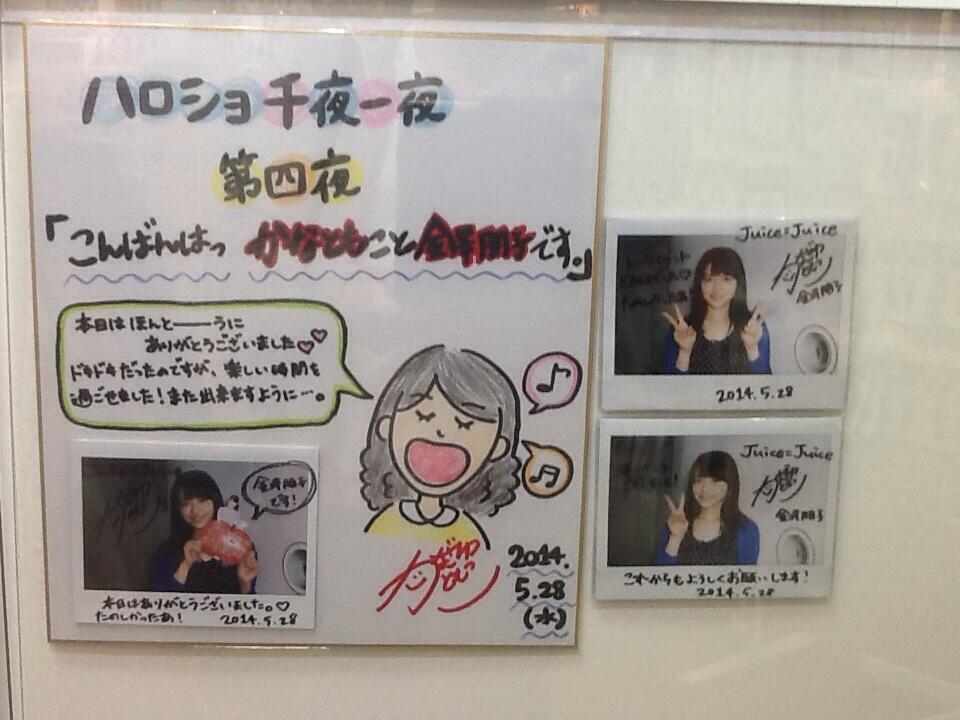 ハロショ千夜一夜
第四夜
「こんばんはっ かなともこと金澤朋子です。」
本日はほんと――うに
ありがとうございました♡♡
ドキドキだったのですが、楽しい時間を
過ごせました!また出来ますように…。
2014.
5.28
(水)
金澤朋子
です!
本日はありがとうございました。♡
たのしかったあ!
2014.5.28
Juice=Juice
金澤朋子
2014.5.28
Juice=Juice
金澤朋子
これからもよろしくお願いします!
2014.5.28